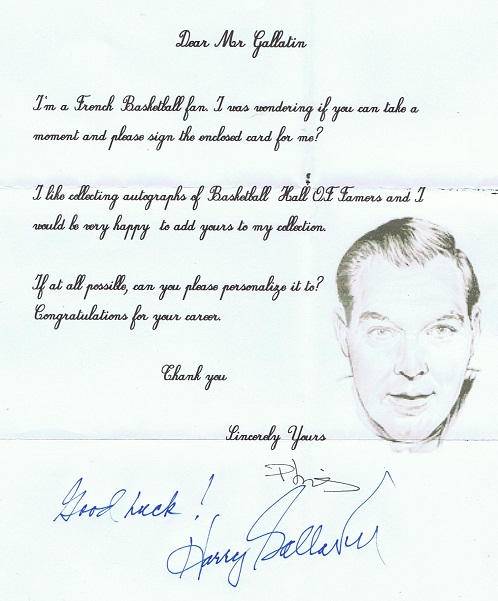 Dear Mr Gallatin
I'm a French Basketball fan. I was wondering if you can take a
moment and please sign the enclosed card for me?
I like collecting autographs of Basketball Hall Of Famers and I
would be very happy to add yours to my collection.
If at all possible, can you please personalize it to?
Congratulations for your career.
Thank you
Sincerely Yours
Good Luck!
Harry Gallatin